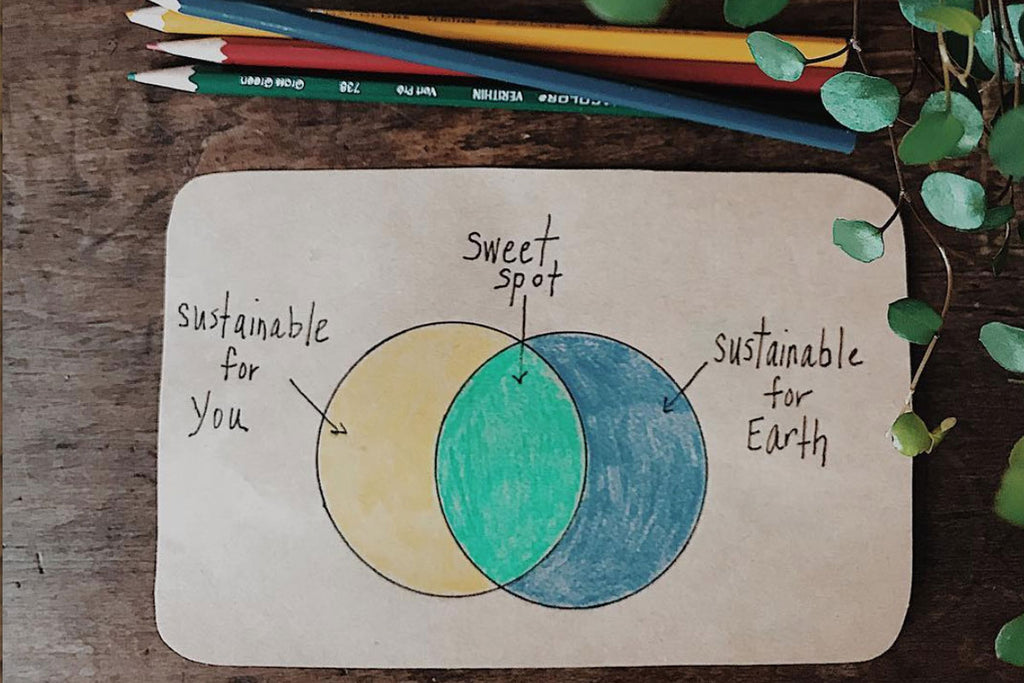 VERITHIN
Grass Green 738 Vert Pré VERITHIN
sweet
spot
sustainable
for
You
sustainable
for
Earth